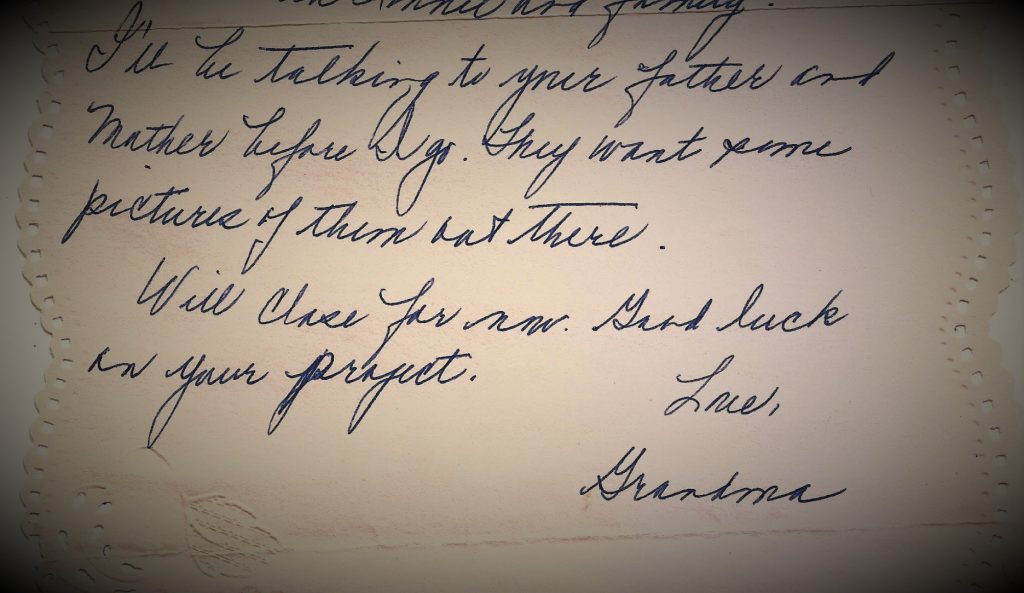 and family.
I'll be talking to your father and
Mother before I go. They want some
pictures of them out there.
Will close for now. Good luck
on your project.
Love,
Grandma